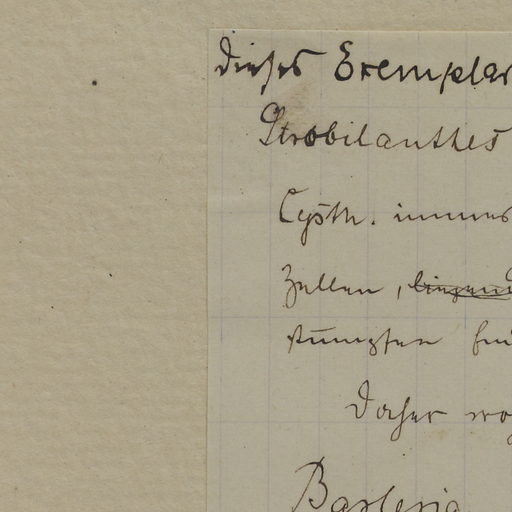 dieses Exemplar
Strobilanthes
Cysth. immer
Zellen, liegend
stumpfen
Daher wo
Barleria